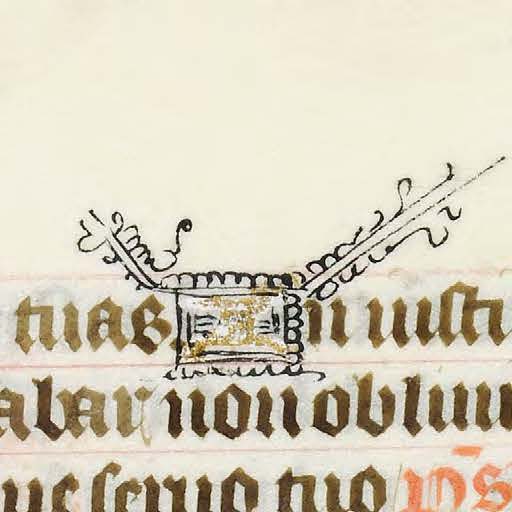 tuas In iusti
abar non obliui
ue seruo tuo p̄s